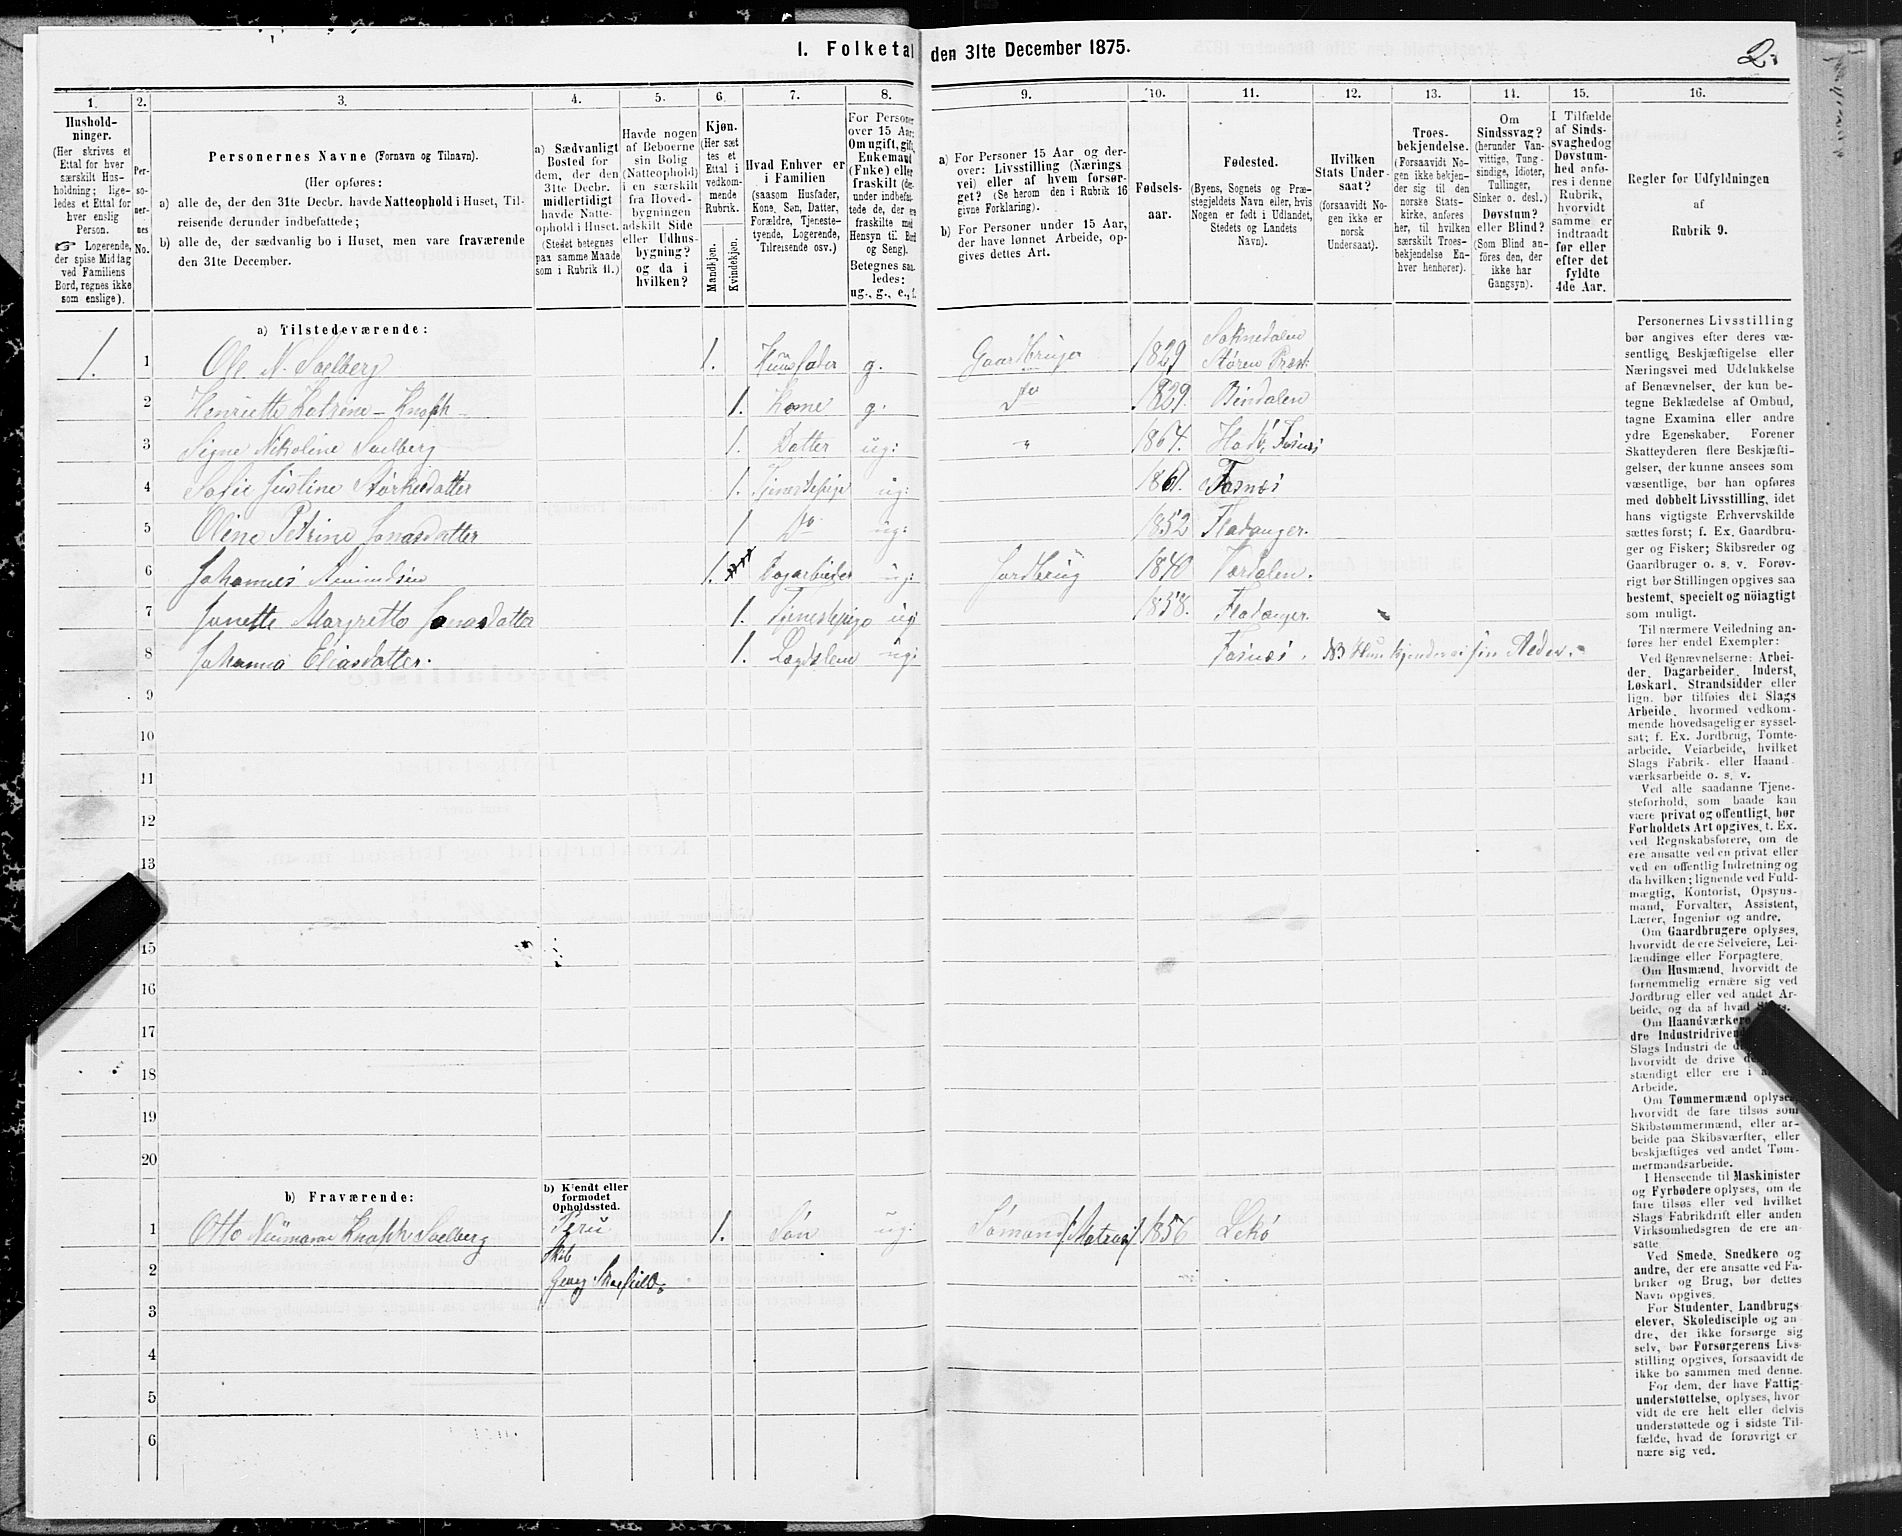 I. Folketal den 31te December 1875.
2.
1.
2.
3.
4.
5.
6.
7.
8.
9.
10.
11.
12.
13.
14.
15.
16.
Hushold-
ninger.
(Her skrives et
Ettal for hver
særskilt Hus-
holdning; lige-
ledes et Ettal for
hver enslig
Person.
☞ Logerende,
der spise Middag
ved Familiens
Bord, regnes ikke
som enslige).
Per-
so-
ner-
nes
No.
Personernes Navne (Fornavn og Tilnavn).
(Her opføres:
a) alle de, der den 31te Decbr. havde Natteophold i Huset, Til-
reisende derunder indbefattede;
b) alle de, der sædvanlig bo i Huset, men vare fraværende
den 31te December.
a) Sædvanligt
Bosted for
dem, der den
31te Decbr.
midlertidigt
havde Natte-
ophold i Huset.
(Stedet betegnes
paa samme Maade
som i Rubrik 11.)
Havde nogen
af Beboerne
sin Bolig
(Natteophold)
i en særskilt
fra Hoved-
bygningen
adskilt Side
eller Udhus-
bygning?
og da i
hvilken?
Kjøn.
(Her sæt-
tes et
Ettal i
vedkom-
mende
Rubrik.
Mandkjøn.
Kvindekjøn.
Hvad Enhver er
i Familien
(saasom Husfader,
Kone, Søn, Datter,
Forældre, Tjeneste-
tyende, Logerende,
Tilreisende osv.)
For Personer
over 15 Aar:
Om ugift, gift,
Enkemand
(Enke) eller
fraskilt (der-
under indbefat-
tede de, der ere
fraskilte med
Hensyn til Bord
og Seng).
Betegnes saa-
ledes:
ug., g., e., f.
a) For Personer 15 Aar og der-
over: Livsstilling (Nærings-
vei) eller af hvem forsør-
get? (Se herom den i Rubrik 16
givne Forklaring).
b) For Personer under 15 Aar,
der have lønnet Arbeide, op-
gives dettes Art.
Fødsels-
aar.
Fødested.
(Byens, Sognets og Præ-
stegjeldets Navn eller, hvis
Nogen er født i Udlandet,
Stedets og Landets
Navn).
Hvilken
Stats Under-
saat?
(forsaavidt No-
gen ikke er
norsk
Undersaat).
Troes-
bekjendelse.
(Forsaavidt No-
gen ikke bekjen-
der sig til den
norske Stats-
kirke, anføres
her, til hvilken
særskilt Troes-
bekjendelse En-
hver henhører).
Om
Sindssvag?
(herunder Van-
vittige, Tung-
sindige, Idioter,
Tullinger,
Sinker o. desl.)
Døvstum?
eller Blind?
(Som Blind an-
føres den, der
ikke har
Gangsyn).
I Tilfælde
af Sinds-
svaghed og
Døvstum-
hed anfø-
res i denne
Rubrik,
hvorvidt
samme er
indtraadt
før eller
efter det
fyldte
4de Aar.
Regler for Udfyldningen
af
Rubrik 9.
a) Tilstedeværende:
1. 1 Ole N. Soelberg 1. Huusfader g. Gaardbruger 1829 Soknedalen
Støren Præst.
2 Henriette Katrine - Knoph 1. Kone g. Do 1829. Bindalen
3 Signe Nikoline Soelberg 1. Datter ug: " 1864. Fosnæs
4 Sofie Justine 1. Tjenestepige ug: 1861. Fosnæs
5 Oline Petrine Jonasdatter 1 Do ug: 1852 Fladanger.
6 Johannes Amundsen 1. Dagarbeider ug: Jordbrug 1840 Værdalen.
7 Janette Margrette Jonasdatter 1. Tjenestepige ug 1858. Fladanger.
8 Johanna Eliasdatter. 1. Lægdslem ug: Fosnæs. NB Hun kjender ei sin Alder.
9
10
11
12
13
15
16
17
18
19
20
b) Fraværende:
b) Kjendt eller
formodet
Opholdssted.
1 Otto Knoph Soelberg Peru 1. Søn ug: Sømand / Matros / 1856 Lekø
Skib
2 Georg
3
4
5
6
Personernes Livsstilling
bør angives efter deres væ-
sentlige Beskjæftigelse eller
Næringsvei med Udelukkelse
af Benævnelser, der kun be-
tegne Beklædelse af Ombud,
tagne Examina eller andre
ydre Egenskaber. Forener
Skatteyderen flere Beskjæfti-
gelser, der kunne ansees som
væsentlige, bør han opføres
med dobbelt Livsstilling, idet
hans vigtigste Erhvervskilde
sættes først; f. Ex. Gaardbru-
ger og Fisker; Skibsreder og
Gaardbruger o. s. v. Forøv-
rigt bør Stillingen opgives saa
bestemt, specielt og nöiagtigt
som muligt.
Til nærmere Veiledning an-
føres her endel Exempler:
Ved Benævnelserne: Arbei-
der, Dagarbeider, Inderst,
Løskarl, Strandsidder eller
lign. bør tilføies det Slags
Arbeide, hvormed vedkom-
mende hovedsageliger syssel-
sat; f. Ex. Jordbrug, Tomte-
arbeide, Veiarbeide, hvilket
Slags Fabrik- eller Haand-
værksarbeide o. s. v.
Ved alle saadanne Tjene-
steforhold, som baade kan
være privat og offentligt, bør
Forholdets Art opgives, t. Ex.
ved Regnskabsførere, om de
ere ansatte ved en privat eller
ved en offentlig Indretning og
da hvilken; lignende ved Fuld-
mægtig, Kontorist, Opsyns-
mand, Forvalter, Assistent,
Lærer, Ingeniør og andre.
Om Gaardbrugere oplyses,
hvorvidt de ere Selveiere, Lei-
lændinge eller Forpagtere.
Om Husmænd, hvorvidt de
fornemmelig ernære sig ved
Jordbrug eller ved andet Ar-
beide, og da af hvad Slags.
Om Haandværkere
dre Industridrivende
Slags Industri de
hvorvidt de drive
stændigt eller ere i
Arbeide.
Om Tømmermænd oplyses,
hvorvidt de fare tilsøs som
Skibstømmermænd, eller ar-
beide paa Skibsværfter, eller
beskjæftiges ved andet Tøm-
mermandsarbeide.
I Henseende til Maskinister
og Fyrbødere oplyses, om de
fare tilsøs eller ved hvilket
Slags Fabrikdrift eller anden
Virksomhedsgren de ere an-
satte
Ved Smede, Snedkere og
andre, der ere ansatte ved Fa-
briker og Brug, bør dettes
Navn opgives.
For Studenter, Landbrugs-
elever, Skoledisciple og an-
dre, der ikke forsørge sig
selv, bør Forsørgerens Livs-
stilling opgives, forsaavidt de
ikke bo sammen med denne.
For dem, der have Fattig-
understøttelse, oplyses, hvor-
vidt de ere helt eller delvis
understøttede og i sidste Til-
fælde, hvad de forøvrigt er-
nære sig ved.